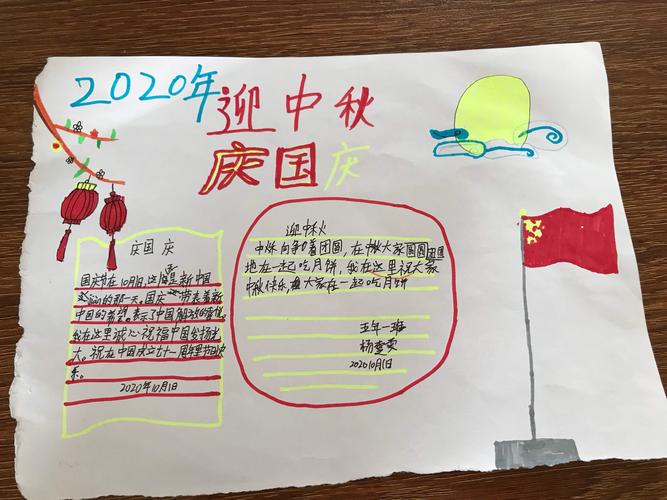 2020年
迎中秋
庆国庆
庆国庆
国庆节在10月1日这届是新中国
的那一天。国庆一带表着新
中国的希望。表示了中国解放的喜悦
我在这里诚心祝福中国发扬光
大。祝在中国成立七十一周年里节日快
乐。
2020年10月1日
迎中秋
中秋向争着团圆，在中秋大家团圆团团
地在一起吃月饼，我在这里祝大家
中秋快乐，大家在一起吃月饼
五年一班
杨
202010月1日